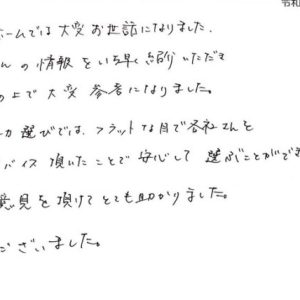 令和
ホームでは大変お世話になりました.
んの情報をいち早く紹介いただき
の上で大変参考になりました。
カ選びでは、フラットな目で各社さんを
バイス頂いたことで安心して選ぶことができ
意見を頂けてとても助かりました。
ございました。